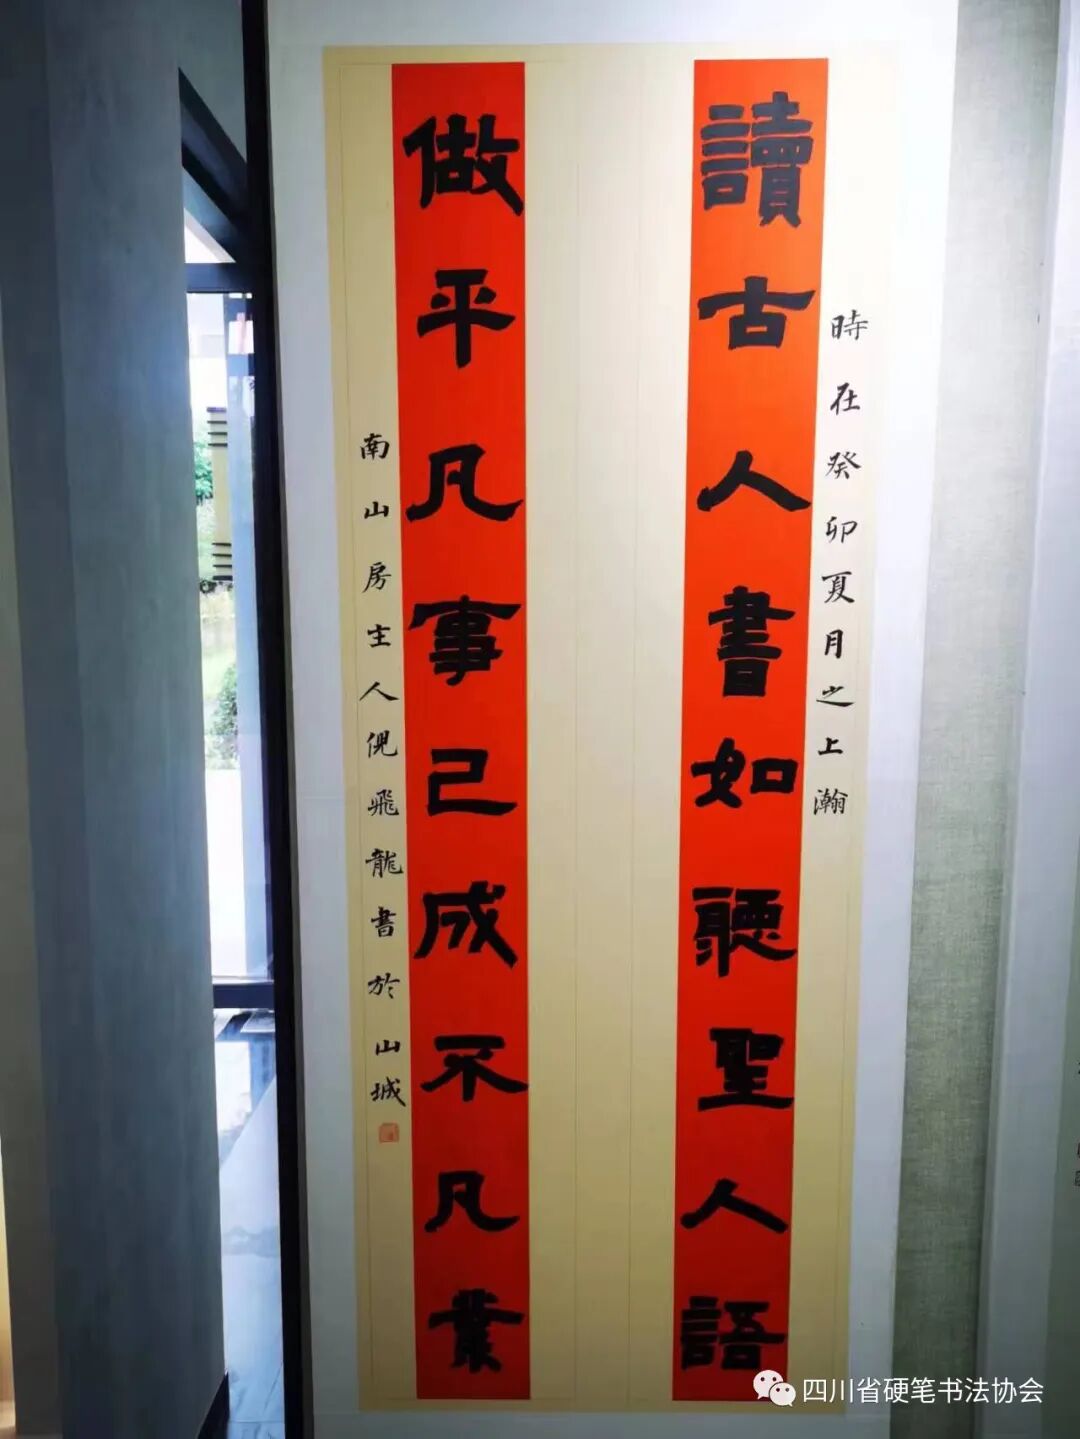 時在癸卯夏月之上瀚
讀古人書如聽聖人語
做平凡事己成不凡業
南山房主人倪飛龍書於山城
四川省硬笔书法协会